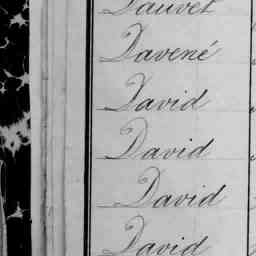 Dauvet
Davené
David
David
David
David